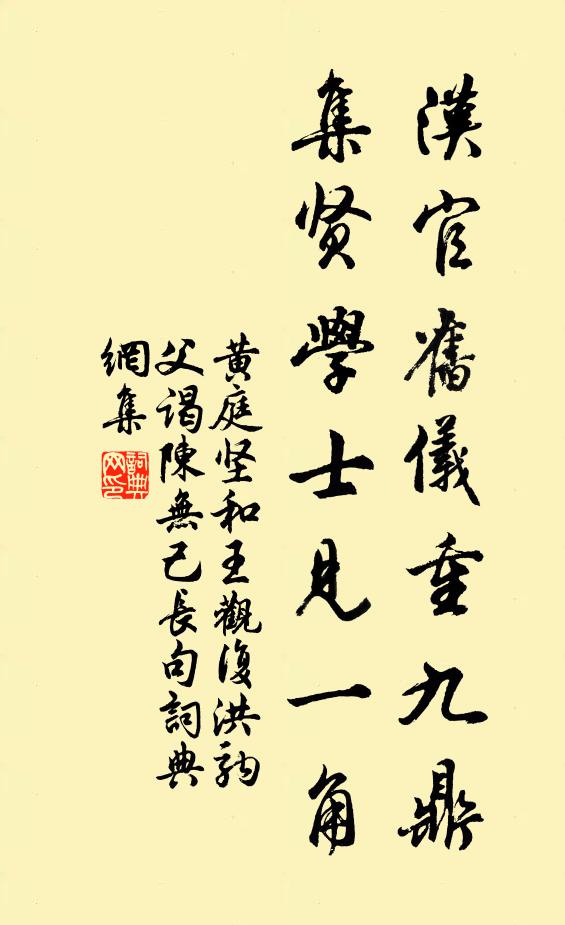 漢官舊儀重九鼎
集贤學士見一角
黄庭坚和王觀復洪駒
父謁陳無己長句詞典
網集
詞典网印